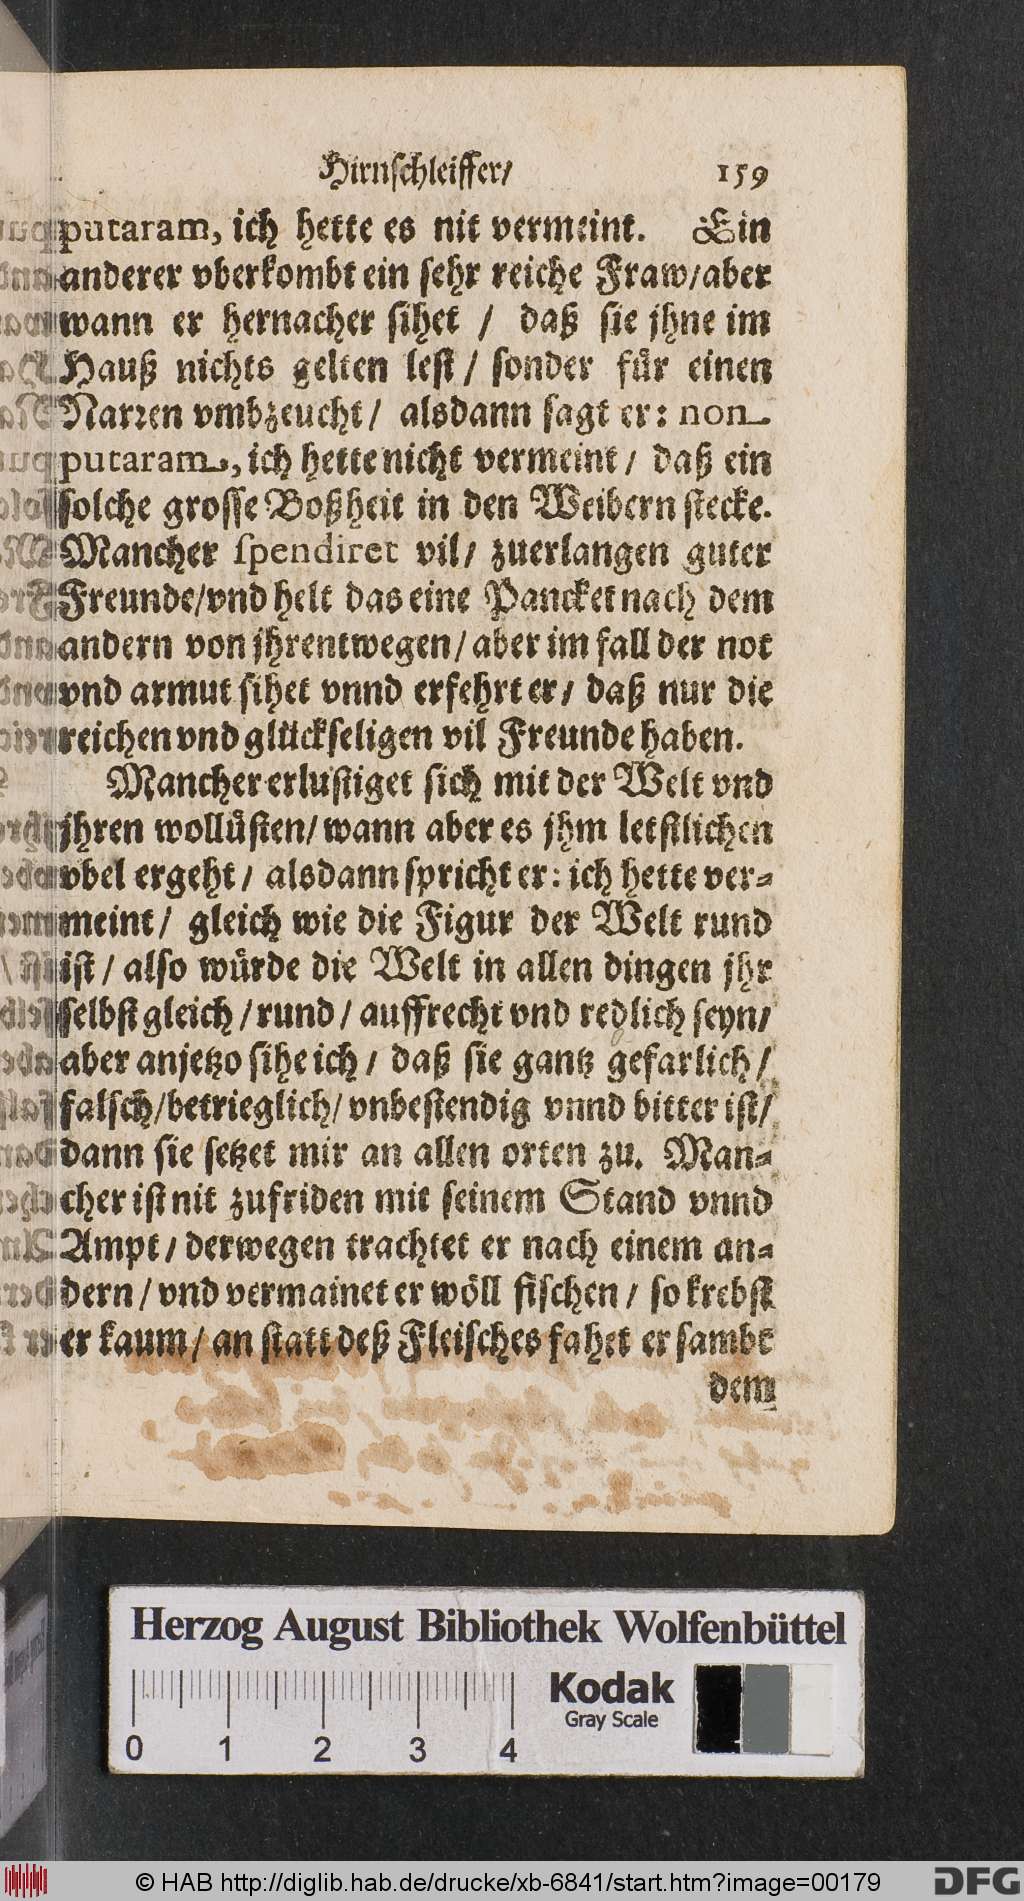 Hirnschleiffer/ 159
putaram, ich hette es nit vermeint. Ein
anderer vberkombt ein sehr reiche Fraw/aber
wann er hernacher sihet / daß sie jhne im
Hauß nichts gelten lest / sonder für einen
Narren vmbzeucht/ alsdann sagt er: non
putaram, ich hette nicht vermeint / daß ein
solche grosse Boßheit in den Weibern stecke.
Mancher spendiret vil/ zuerlangen guter
Freunde/vnd helt das eine Pancket nach dem
andern von jhrentwegen/ aber im fall der not
vnd armut sihet vnnd erfehrt er/ daß nur die
reichen vnd glückseligen vil Freunde haben.
Mancher erlustiget sich mit der Welt vnd
jhren wollüsten/ wann aber es jhm letstlichen
vbel ergeht/ alsdann spricht er: ich hette ver-
meint/ gleich wie die Figur der Welt rund
ist / also würde die Welt in allen dingen jhr
selbst gleich / rund / auffrecht vnd redlich seyn/
aber anjetzo sihe ich / daß sie gantz gefarlich /
falsch/betrieglich/ vnbestendig vnnd bitter ist/
dann sie setzet mir an allen orten zu. Man-
cher ist nit zufriden mit seinem Stand vnnd
Ampt / derwegen trachtet er nach einem an-
dern / vnd vermainet er wöll fischen / so krebst
er kaum / an statt deß Fleisches fahet er sambt
dem
Herzog August Bibliothek Wolfenbüttel
Kodak
Gray Scale
0 1 2 3 4
© HAB http://diglib.hab.de/drucke/xb-6841/start.htm?image=00179
DFG